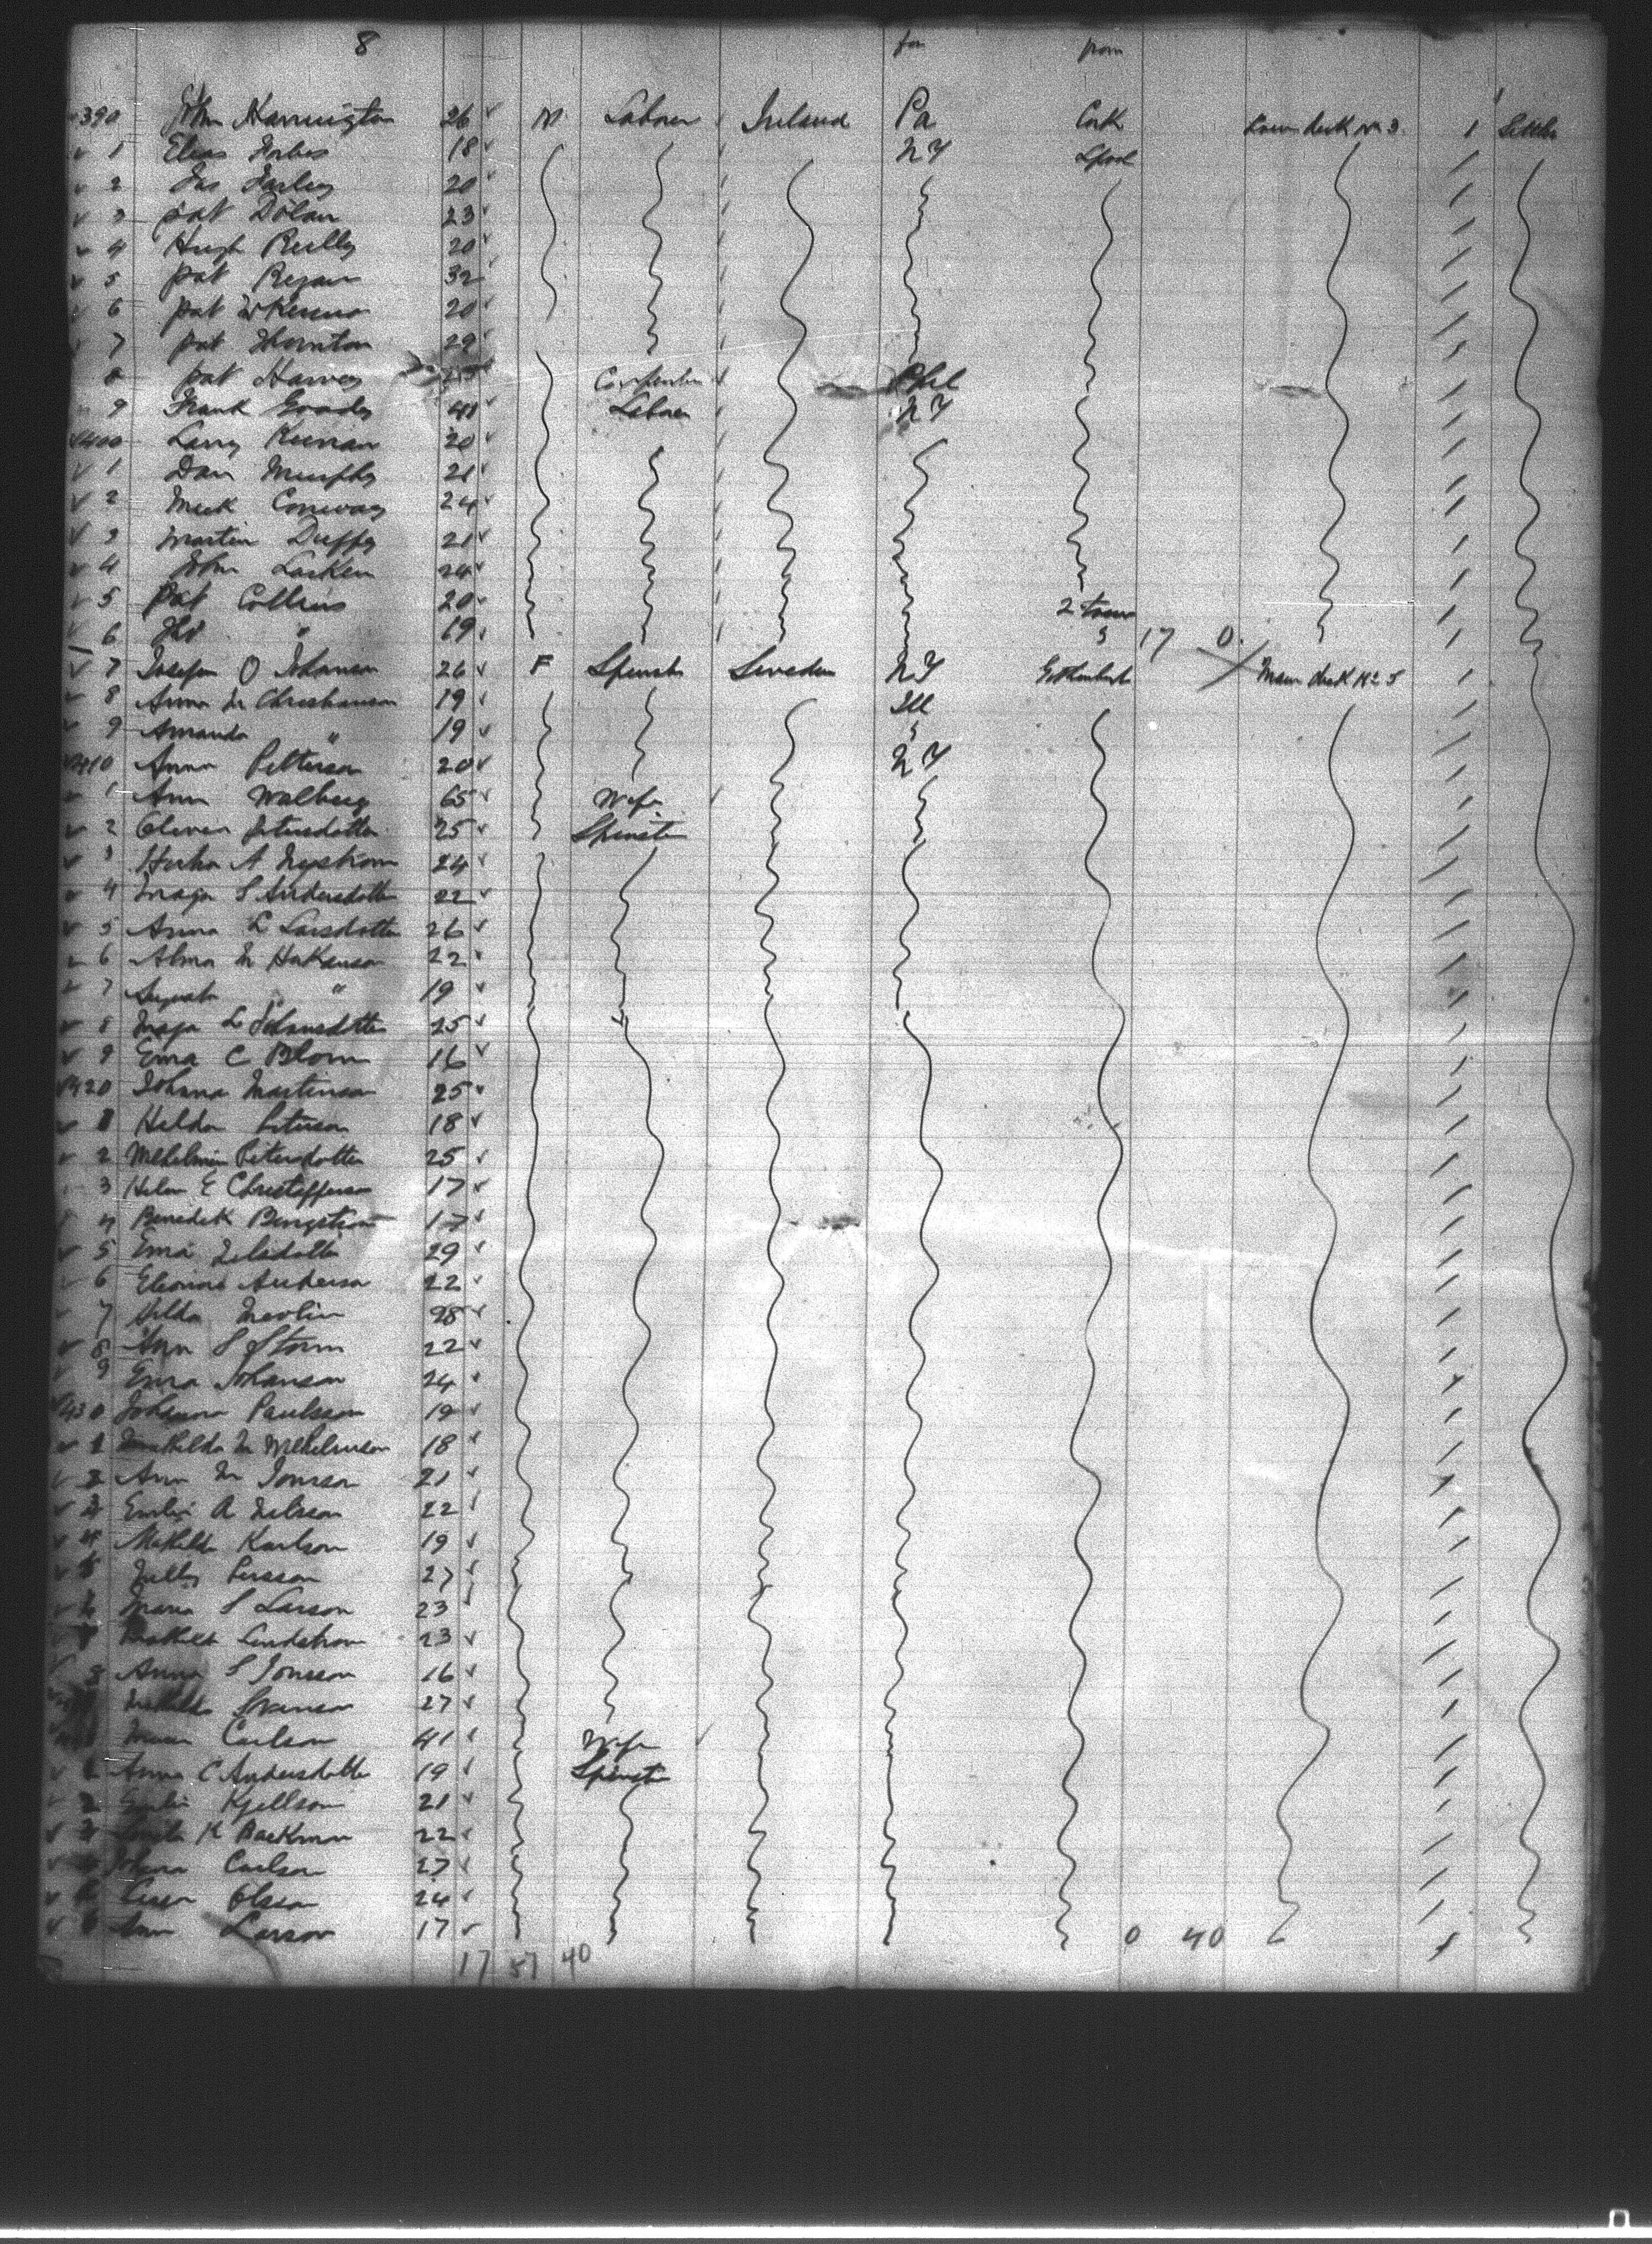 8 for from
390 John Harrington 26 M Laborer Ireland Pa Cork Lower deck No 3. 1 Settler
1 Elias Forbes 18 NY Lpool
2 Jas Farley 20
3 Pat Dolan 23
4 Hugh Reilly 20
5 Pat Regan 32
6 Pat 20
7 Pat Thornton 29
8 Pat Harvey Carpenter Phil
9 Frank Grady 41 Laborer NY
400 Larry Keenan 20
1 Dan Murphy 21
2 Mick Conway 24
3 Martin Duffy 21
4 John Larken 24
5 Pat Collins 20 2
6 " 19 17 0
7 O Johanson 26 F Spinster Sweden NY Gothenburg Main deck No 5 1
8 Anna M Christianson 19 Ill
9 Amanda " 19
410 Anna Petterson 20 NY
1 Ann Walberg 65 Wife
2 Petersdotter 25 Spinster
3 A Nystrom 24
4 Maja S Andersdotter 22
5 Anna L Larsdotter 26
6 Alma M Hakanson 22
7 August " 19
8 Maja L Johansdotter 25
9 Ema C Blom 16
420 Johanna Martinson 25
1 Hilda Peterson 18
2 Petersdotter 25
3 Helen E Christofferson 17
4 Benedik 17
5 Ema Nilsdotter 29
6 Eleonora Anderson 22
7 Hilda 28
8 Ann S Storm 22
9 Ema Johanson 24
430 Johanna Paulsson 19
1 Mathilda M 18
2 Ann M Jonsson 21
3 A Nilsson 22
4 Mathilda Karlson 19
5 Persson 27
6 Maria S Larson 23
7 Mathilda Lindstrom 23
8 Anna S Jonsson 16
Mathilda Swanson 27
Carlson 41 Wife
1 Anna C Andersdotter 19 Spinster
2 Kjellson 21
3 K Backman 22
4 Johana Carlson 27
Olsson 24
6 Ann Larson 17 0 40
17 57 40